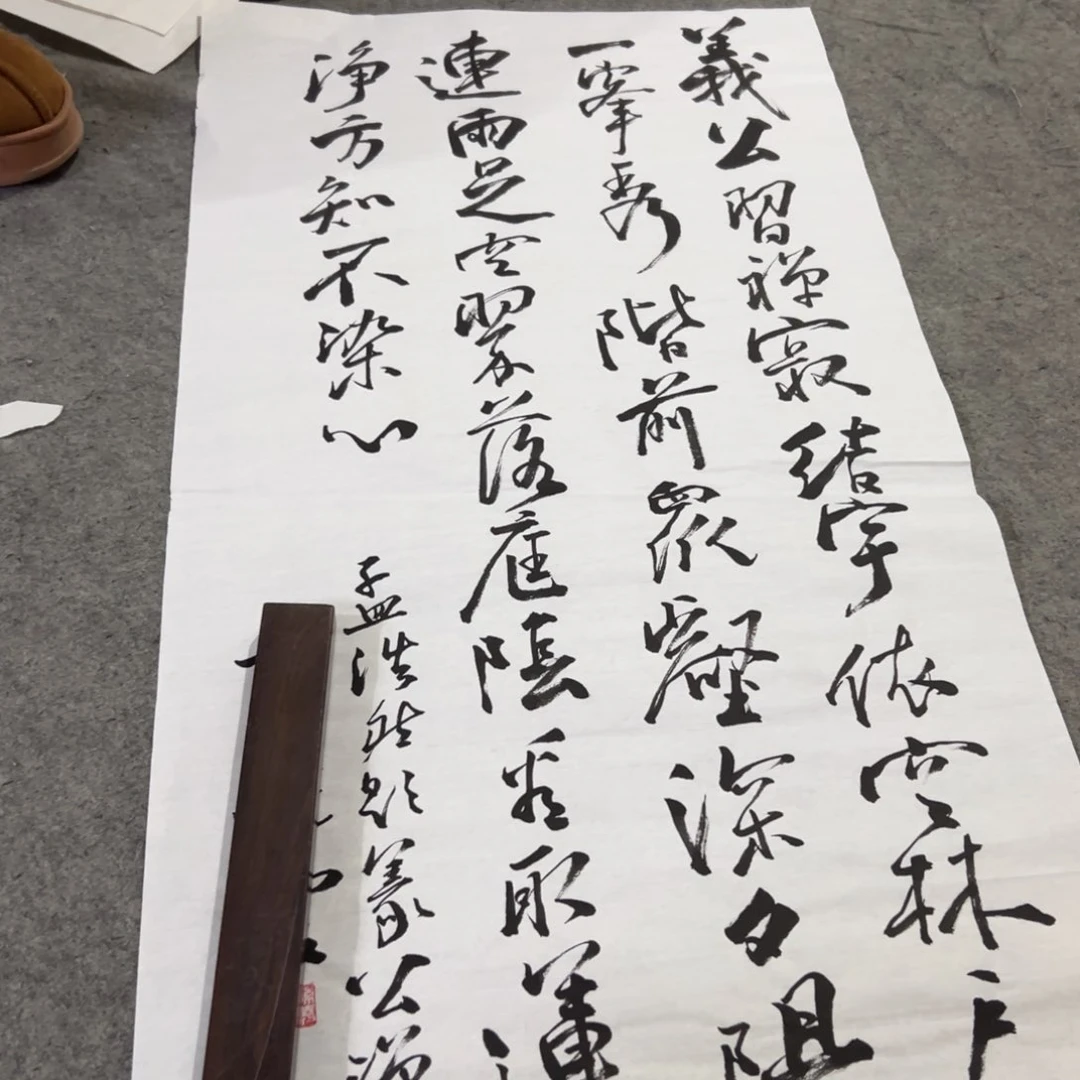 義公習禅寂結宇依空林户
一峯秀階前眾壑深夕
連雨足空翠落庭陰看取蓮
淨方知不染心
孟浩然題義公禅